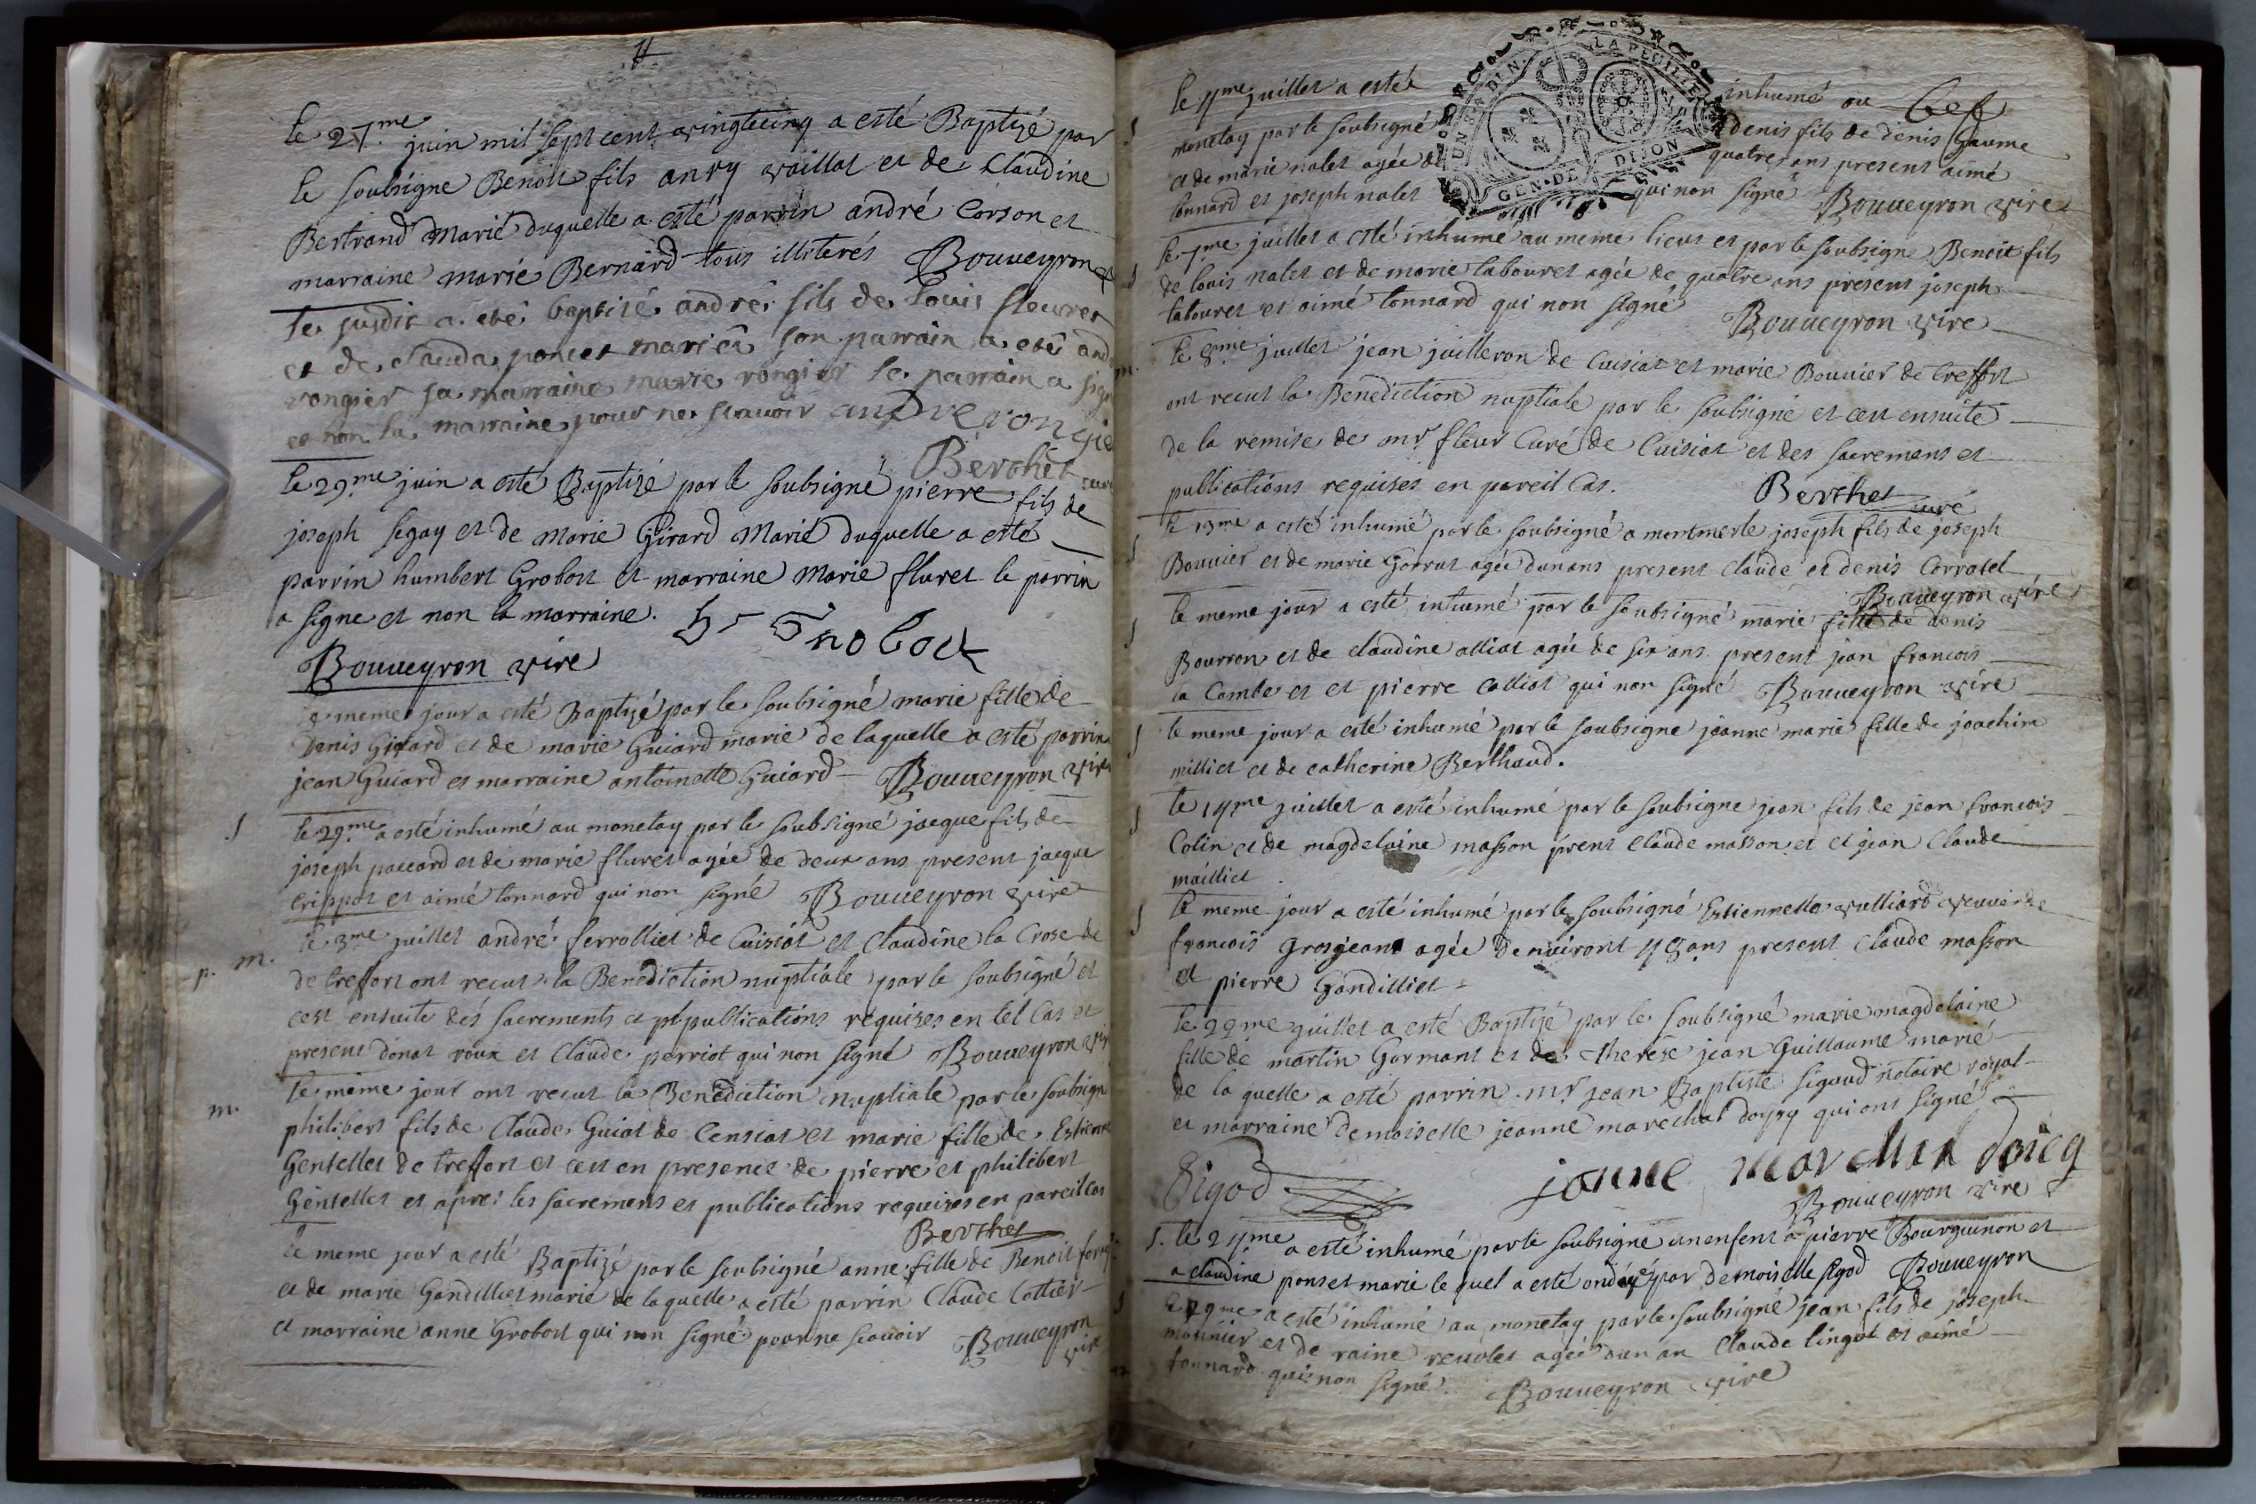 le 27.me juin mil sept cent vingtcinq a esté Baptizé par
le soubsigne Benoit fils anry vaillat et de Claudine
Bertrand Marié duquelle a esté parrin andré Corson et
marraine marie Bernard tous illiterés Bouveyron
le susdit a eté baptisé andré fils de Louis fleuret
et de clauda poncet mariés son parrain a eté and
rongier sa marraine marie rongier le parrain a sign
et non la marraine pour ne scavoir andre rongie
Berthet curé
le 29.me juin a esté Baptizé par le soubsigné pierre fils de
joseph segay et de Marie Girard Marié duquelle a esté
parrin humbert Grobost et marraine Marie fluret le parrin
a signe et non la marraine. h Grobost
Bouveyron vire
le meme jour a esté Baptizé par le soubsigné marie fille de
Denis Girard et de marie Guiard marié de laquelle a esté parrin
jean Guiard et marraine antoinette Guiard Bouveyron vire
le 29.me a esté inhumé au monetay par le soubsigné jacque fils de
joseph paccard et de marie fluret agée de deux ans present jacque
crippat et aimé tonnard qui non signé Bouveyron vire
p. m. le 3me juillet andré ferrolliet de Cuisiat et Claudine la Crose de
de treffort ont recut la Benediction nuptiale par le soubsigné et
cest ensuite des sacrements et pt publications requises en tel Cas et
present donat roux et Claude perriot qui non signé Bouveyron vir
m. le même jour ont recut la Benediction nuptiale par le soubsign
philibert fils de Claude Guiat de Censiat et marie fille de Estienne
Gentellet de treffort et cest en presence de pierre et philibert
Gentellet et apres les sacremens et publications requises en pareil cas
Berthet
le meme jour a esté Baptizé par le soubsigné anne fille de Benoit
et de marie Gandilliet marié de laquelle a esté parrin Claude Cottier
et marraine anne Grobost qui non signé pour ne scavoir Bouveyron
vire
UN S DE DEN. LA P FEUILLE
GEN. DE DIJON
le 4me juillet a esté inhumé au
monetay par le soubsigné denis fils de denis Gaume
et de marie nalet agée de quatre ans present aimé
tonnard et joseph nalet qui non signé Bouveyron vire
le 7me juillet a esté inhume au meme lieux et par le soubsigne Benoit fils
de louis nalet et de marie labouret agée de quatre ans present joseph
labouret et aimé tonnard qui non signé Bouveyron vire
m. le 8me juillet jean juilleron de Cuisiat et marie Bouvier de treffort
ont recut la Benediction nuptiale par le soubsigné et cest ensuite
de la remise de mr fleur Curé de Cuisiat et des sacremens et
publications requises en pareil Cas. Berthet curé
le 13me a esté inhumé par le soubsigné a montmerle joseph fils de joseph
Bouvier et de marie Gorrat agée dun ans present claude et denis Corratel
Bouveyron vire
le meme jour a esté inhumé par le soubsigné marie fille de denis
Bourron et de claudine alliat agée de six ans present jean francois
la Combe et et pierre Calliot qui non signé Bouveyron vire
le meme jour a esté inhumé par le soubsigne jeanne marie fille de joachim
milliet et de catherine Berthaud.
le 14me juillet a esté inhumé par le soubsigne jean fils de jean francois
Colin et de magdelaine masson prent Claude masson et et jean Claude
mailliet
le meme jour a esté inhumé par le soubsigné Estiennette vulliard veuve de
francois Grosjean agée denviront 48 ans present Claude masson
et pierre Gandilliet
le 22me juillet a esté Baptizé par le soubsigné marie magdelaine
fille de martin Gormant et de therese jean Guillaume marié
de la quelle a esté parrin mr jean Baptiste sigaud notaire royal
et marraine demoiselle jeanne marechal doyry qui ont signé
Sigod janne marechal
Bouveyron vire
s. le 24me a esté inhumé par le soubsigne un enfent a pierre Bourguinon et
a claudine ponset marie le quel a esté ondoyé par demoiselle sigod Bouveyron
le 29me a esté inhumé au monetay par le soubsigné jean fils de joseph
monnier et de raine revolet agée dun an Claude lingot et aimé
tonnard qui non signé. Bouveyron vire